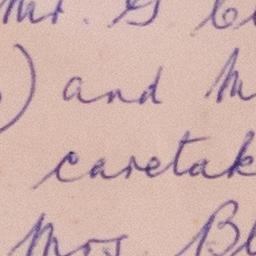 Mr. G
) and
caretak
Mrs. Bl